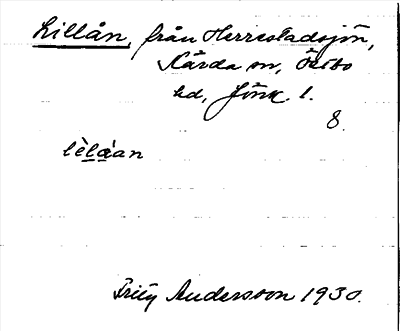 Lillån, från Herrestadsjön,
Kärda sn, Östbo
hd, Jönk. l.
8.
lèlåan
Fritz Andersson 1930.